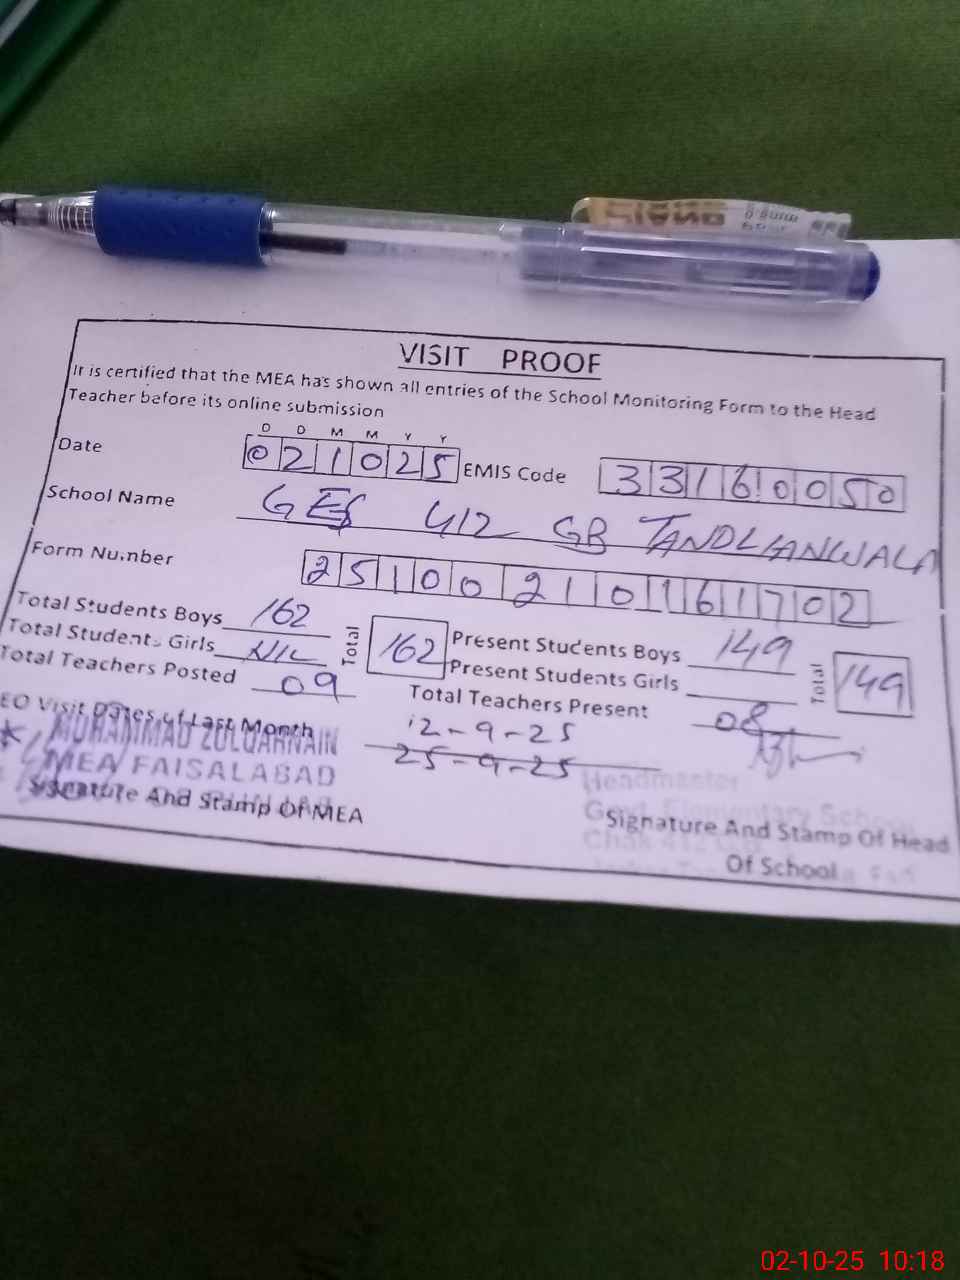 PIANO
VISIT PROOF
It is certified that the MEA has shown all entries of the School Monitoring Form to the Head
Teacher before its online submission
D D M M Y Y
Date 0 2 1 0 2 5 EMIS Code 3 3 1 6 0 0 5 0
School Name GES 412 GB TANDLIANWALA
Form Number 2 5 1 0 0 2 1 0 1 6 1 7 0 2
Total Students Boys 162 Total 162 Present Students Boys 149 Total 149
Total Students Girls NIL Present Students Girls
Total Teachers Posted 09 Total Teachers Present 08
EO Visit Dates of Last Month 12-9-25
25-9-25
MUHAMMAD ZULQARNAIN
MEA FAISALABAD
Signature And Stamp Of MEA
Headmaster
Govt. Elementary School
Chak 412 G.B
Signature And Stamp Of Head
Of School
02-10-25 10:18